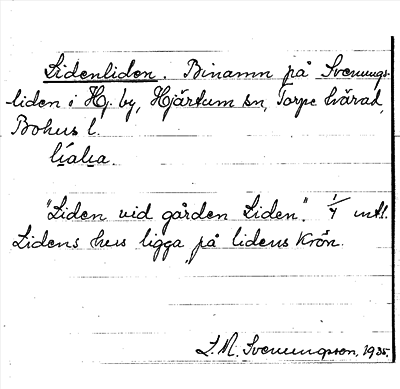 Lidenliden. Binamn på Svenungs-
liden i Hj. by, Hjärtum sn, Torpe härad,
Bohus l.
"Liden vid gården Liden." 1/4 mtl.
Lidens hus ligga på lidens krön.
L. M. Svenungsson, 1935.